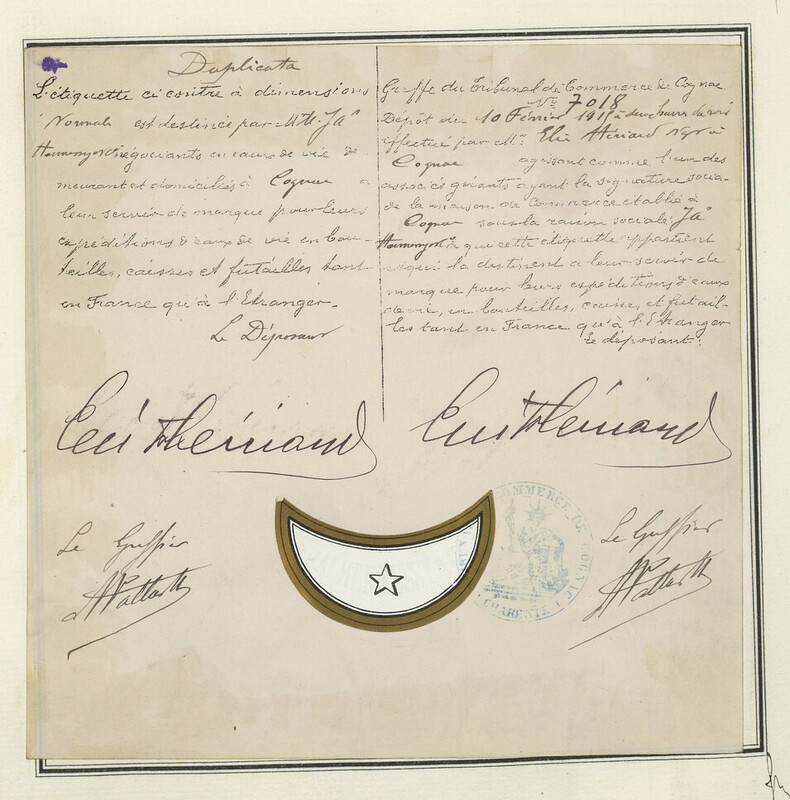 Duplicata
L'étiquette ci contre à dimensions
Normale est destinée par MM. Ja^s
Hennessy & C° négociants en eaux de vie de-
meurant et domiciliés à Cognac a
leur servir de marque pour leurs
expéditions d'eaux de vie en bou-
teilles, caisses et futailles tant
en France qu'à l'Etranger.
Le Déposant
Greffe du Tribunal de Commerce de Cognac
N° 7018
Dépôt du 10 Février 1915 à deux heures du soir
effectué par Mr. Elie Hériard Ngt à
Cognac agissant comme l'un des
associés gérants ayant la signature socia-
le de la maison de Commerce établie à
Cognac sous la raison sociale: Ja^s
Hennessy & C° à qui cette étiquette appartient
et qui la destinent a leur servir de
marque pour leurs expéditions d'eaux
de vie, en bouteilles, caisses et futail-
les tant en France qu'à l'Etranger
Le déposant:
Hériard
Hériard
Le Greffier
Le Greffier
COMMERCE DE COGNAC
CHARENTE